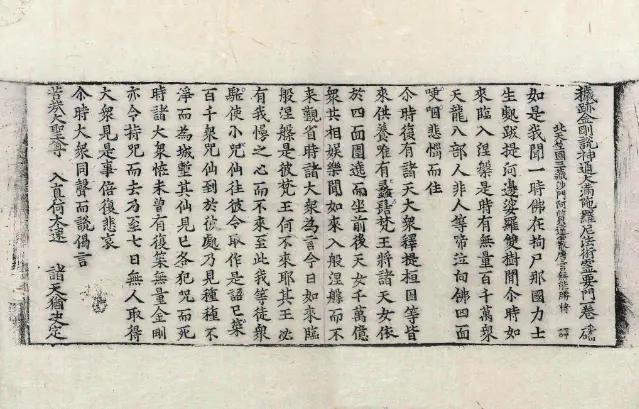 穢跡金剛說神通大滿陁羅尼法術靈要門卷 磻
北天竺國三藏沙門阿質達霰唐言無能勝將 譯
如是我聞一時佛在拘尸那國力士
生處跋提河邊娑羅雙樹間尒時如
來臨入涅槃是時有無量百千萬衆
天龍八部人非人等啼泣向佛四面
哽咽悲惱而住
尒時復有諸天大衆釋提桓因等皆
來供養唯有蠡髻梵王將諸天女依
於四面圍遶而坐前後天女千萬億
衆共相娛樂聞如來入般涅槃而不
來觀省時諸大衆為言今日如來臨
般涅槃是彼梵王何不來耶其王必
有我慢之心而不來至此我等徒衆
駈使小咒仙往彼令取作是語已䇿
百千衆咒仙到於彼處乃見種種不
淨而為城塹其仙見已各犯咒而死
時諸大衆恠未曾有復䇿無量金剛
亦令持咒而去乃至七日無人取得
大衆見是事倍復悲哀
尒時大衆同聲而說偈言
苦哉大聖尊 入真何太速 諸天猶決定